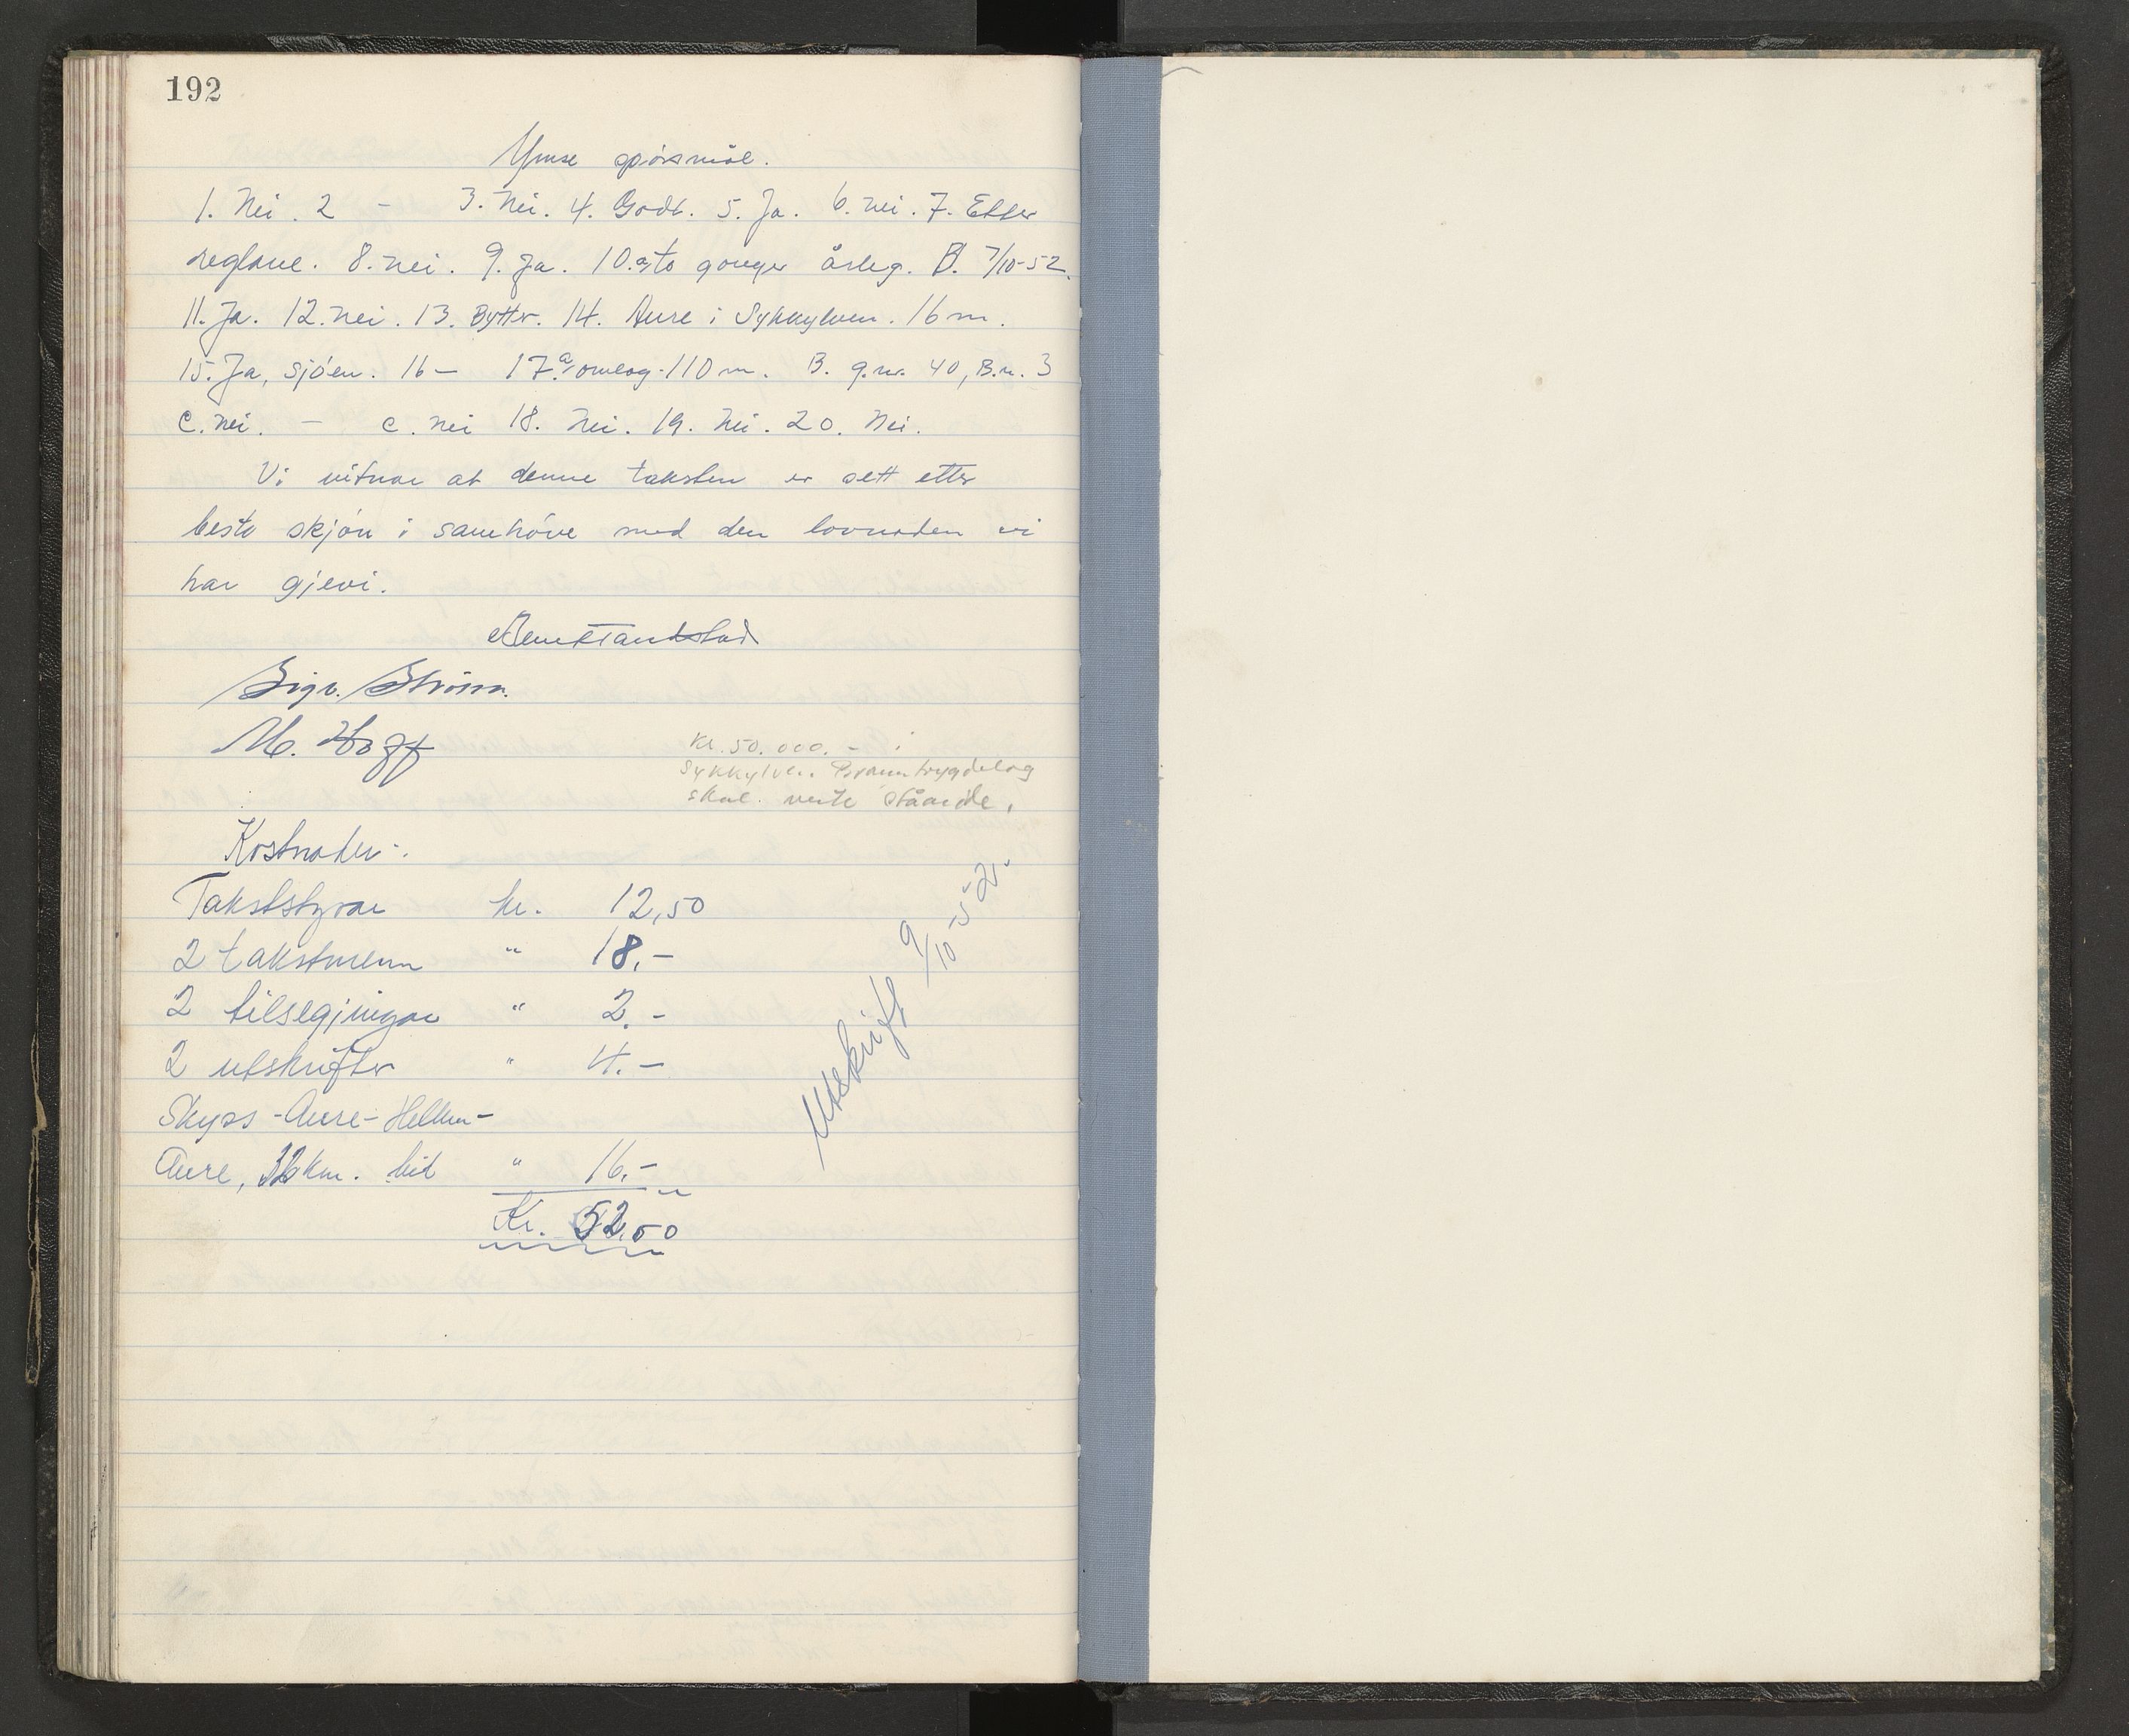 192
Ymse spörsmål.
1. Nei. 2 - 3. Nei. 4. Godt. 5. Ja. 6. nei. 7. Etter
reglane. 8. nei. 9. Ja. 10. a, to gonger årleg. B. 7/10-52.
11. Ja. 12. nei. 13. Bytter. 14. Aure i Sykkylven. 16 m.
15. Ja, sjöen. 16 - 17. a, omlag 110 m. B. g.nr. 40, B.n. 3
c. nei. - c. nei 18. Nei. 19. Nei. 20. Nei.
Vi vitnar at denne taksten er sett etter
beste skjön i samhöve med den lovnaden vi
har gjevi.
Tandstad
Sigv. Ström.
M. Hoff
Kr. 50.000. - i
Sykkylven Branntrygdelag
skal verte ståande.
Kostnader:
Takststyrar kr. 12,50
2 takstmenn " 18.-
2 tilsegjingar " 2.-
2 utskrifter " 4.-
Skyss - Aure - Hellen -
Aure, km. bil " 16.-
Kr. 52,50
Utskrift 9/10-52.